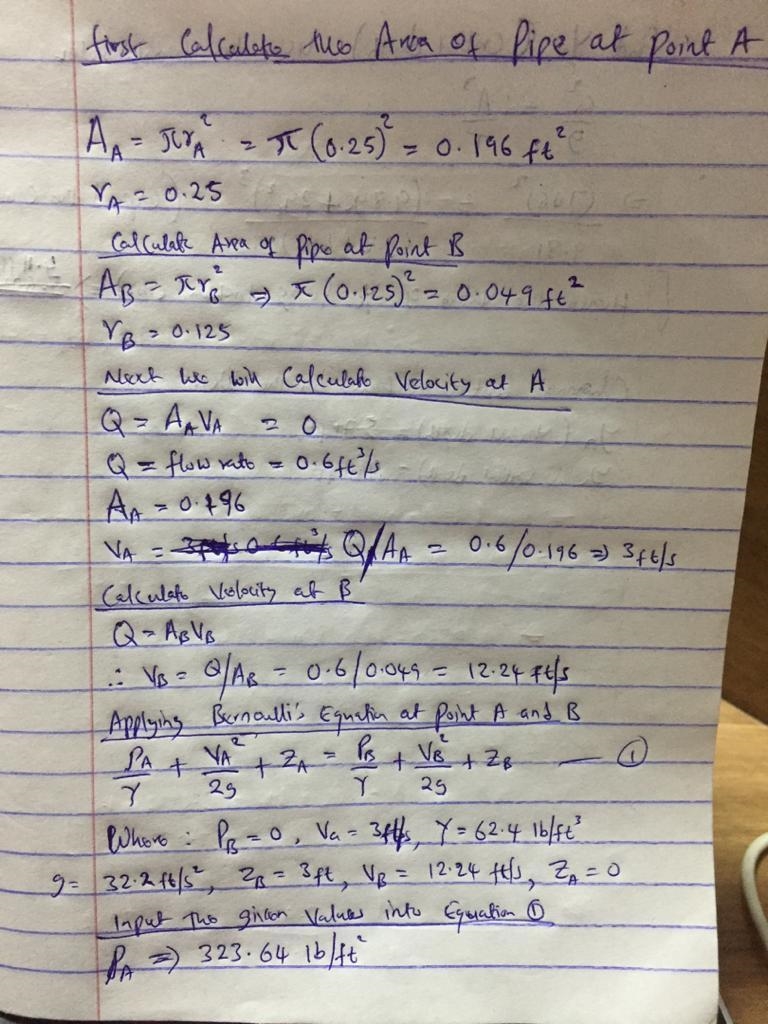 first Calculate the Area of Pipe at point A
A_A = πr_A² = π(0.25)² = 0.196 ft²
r_A = 0.25
Calculate Area of Pipe at Point B
A_B = πr_B² ⇒ π(0.125)² = 0.049 ft²
r_B = 0.125
Next we will Calculate Velocity at A
Q = A_A V_A = 0
Q = flow rate = 0.6 ft³/s
A_A = 0.196
V_A = Q/A_A = 0.6/0.196 ⇒ 3 ft/s
Calculate Velocity at B
Q = A_B V_B
∴ V_B = Q/A_B = 0.6/0.049 = 12.24 ft/s
Applying Bernoulli's Equation at Point A and B
P_A/γ + V_A²/2g + Z_A = P_B/γ + V_B²/2g + Z_B — ①
Where : P_B = 0, Va = 3ft/s, γ = 62.4 lb/ft³
g = 32.2 ft/s², Z_B = 3ft, V_B = 12.24 ft/s, Z_A = 0
Input the given values into Equation ①
P_A ⇒ 323.64 lb/ft²